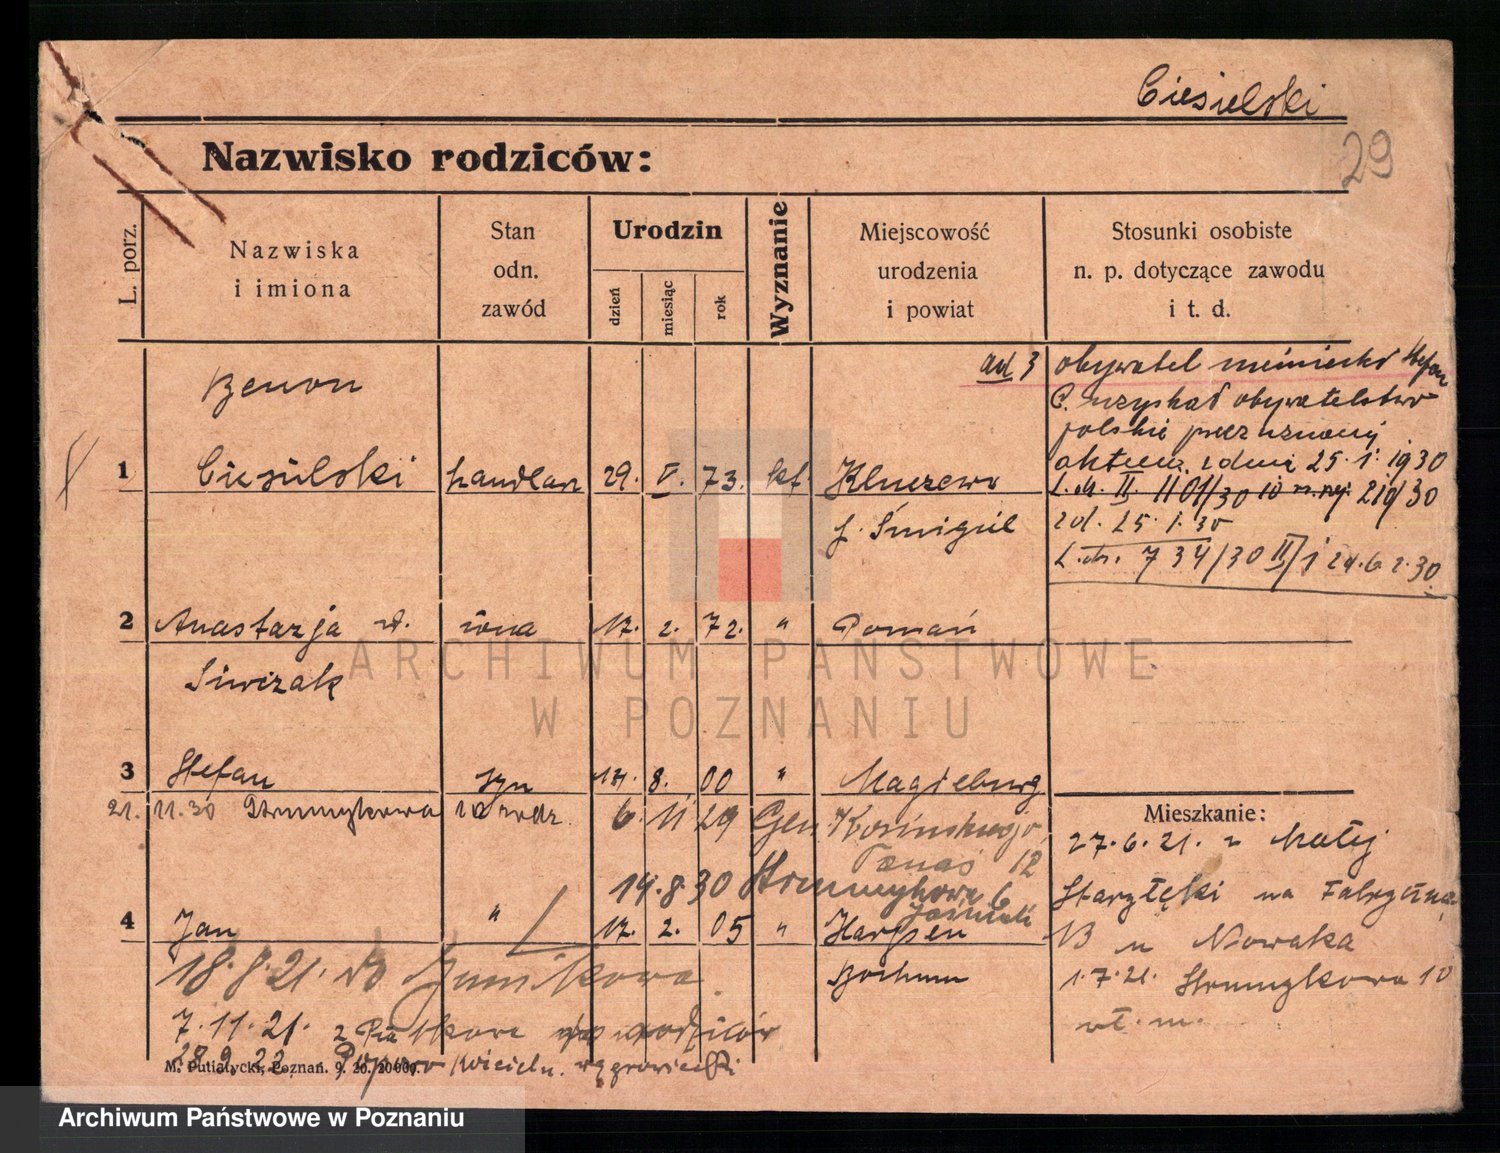 Ciesielski
29
Nazwisko rodziców:
L. porz.
Nazwiska
i imiona
Stan
odn.
zawód
Urodzin
dzień
miesiąc
rok
Wyznanie
Miejscowość
urodzenia
i powiat
Stosunki osobiste
n. p. dotyczące zawodu
i t. d.
ad 3 obywatel niemiecki Stefan
C. uzyskał obywatelstwo
polskie przez
aktem z dnia 25.1.1930
L. dz. II 1101/30
zd. 25.1.30
L. dz. 734/30 II/1 zd. 6.2.30.
Benon
1 Ciesielski handlarz 29. V. 73. kat. Kluczewo
p. Śmigiel
2 Anastazja żona 17. 2. 72. " Poznań
Siwczak
3 Stefan syn 8. 00 " Magdeburg
21. 11.30 Strumykowa 10 rodz. 6 11 29 Gen Kosińskiego
12
19.8.30 Strumykowa 6
4 Jan " 17. 2. 05 " Harpen
Bochum
18.8.21. do Junikowa
7.11.21. z
28.9.22
Mieszkanie:
27.6.21. z Małej
Starołęki na Fabryczną
13 u Nowaka
1.7.21. Strumykowa 10
wł. m.
M. Putiatycki, Poznań. 9. 20. 20000.
ARCHIWUM PAŃSTWOWE
W POZNANIU
Archiwum Państwowe w Poznaniu